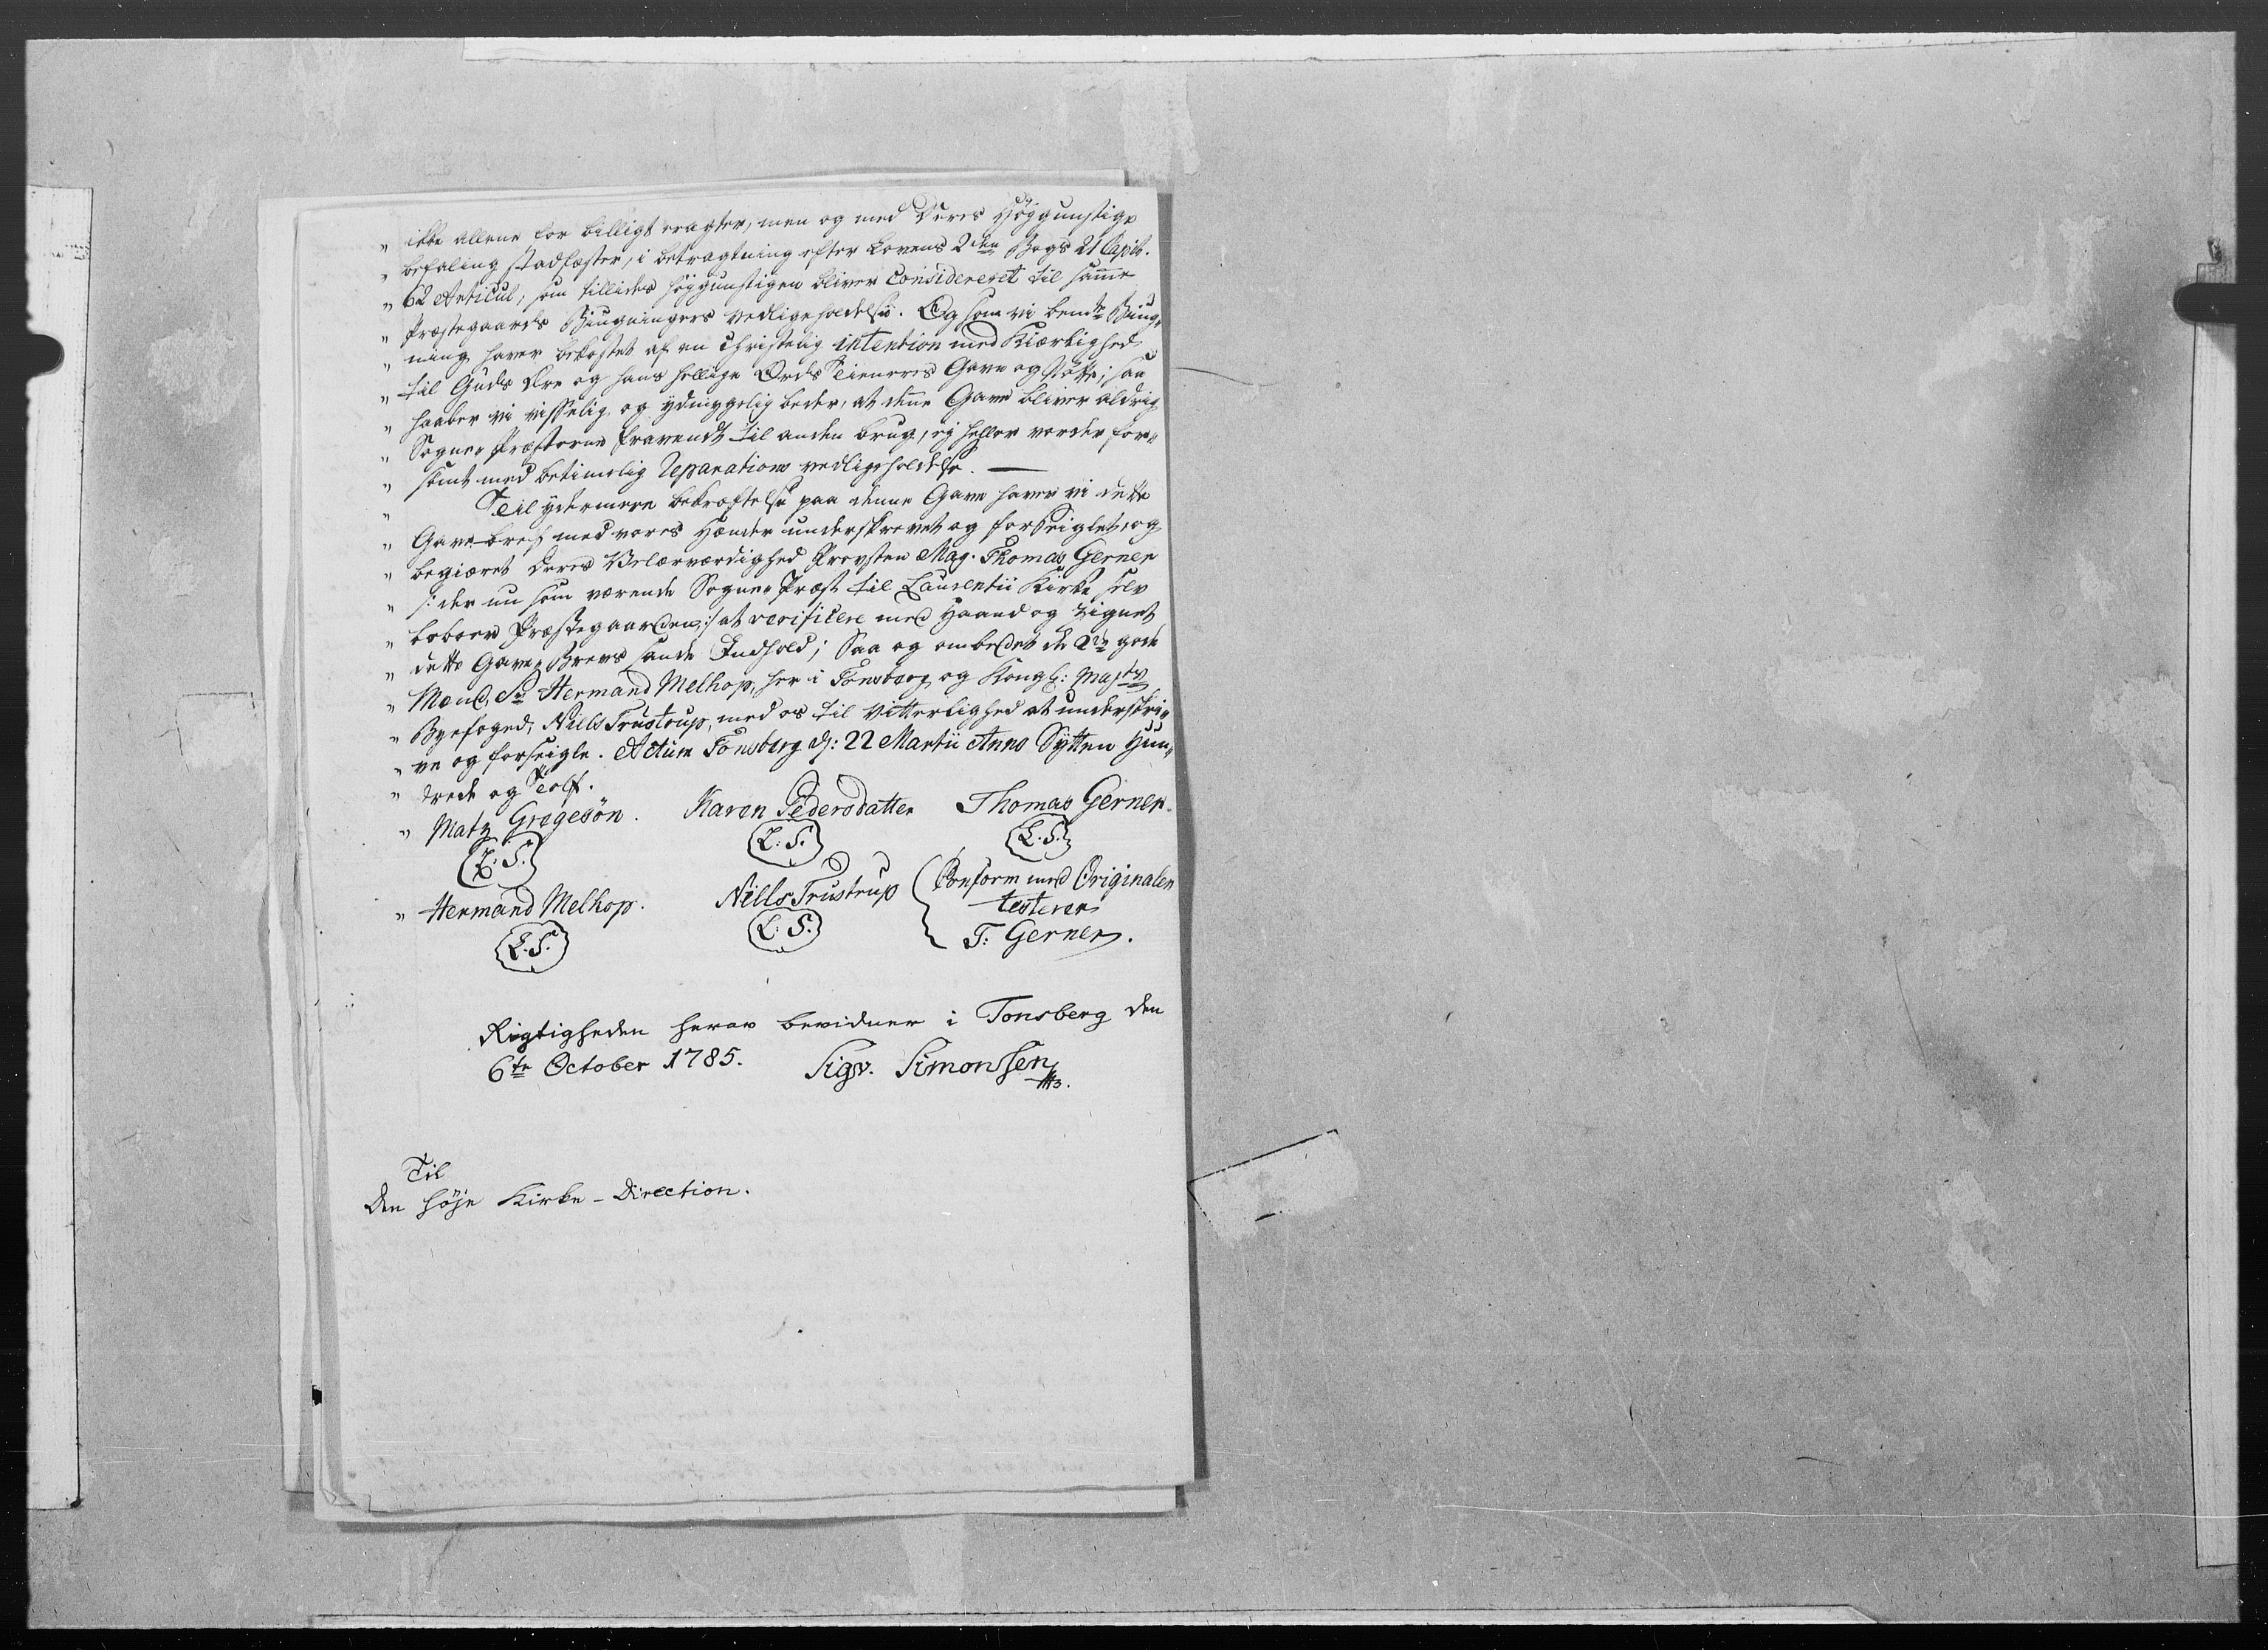 „ ikke allene for billigt eragter, men og med Deres Høygunstige
„ befaling stadfæster, i betragtning efter Lovens 2den Bogs 21 Capit.
„ 62 Articul, som tillides høygunstigen bliver Considereret til samme
„ Præstegaards Biugningers vedligeholdelse. Og som vi bemte Biug„
„ ning haver bekostet af en Christelig intention med Kiærlighed
„ til Guds Ære og hans hellige Ords Tieneres Gavn og støtte; saa
„ haaber vi visselig og ydmygelig beder, at denne Gave bliver aldrig
„ Sogne Præsterne fravendt til anden brug, ej heller vorder for„
„ sømt med betimelig Reparations vedligeholdelse. —
„ Til ydermere bekræftelse paa denne Gave haver vi dette
„ Gave-bref med vores Hænder underskrevet og forseiglet, og
„ begiæret Deres Velærværdighed Provsten Mag. Thomas Gerner
„ /: der nu som værende Sogne Præst til Laurentii Kirke selv
„ beboer Præstegaarden :/ at verificere med Haand og Zignet
„ dette Gave-Brevs sande Indhold; Saa og ombedet de 2de gode
„ Mænd, Sr Hermand Melhop, her i Tonsberg og Kongl: Maysts
„ Byefoged, Niells Trustrup, med os til Vitterlighed at underskri„
„ ve og forseigle. Actum Tonsberg d: 22 Martii Anno Sytten Hun„
„ drede og Tolf.
„ Matz Gregesön. Karen Pedersdatter Thomas Gerner.
(L. S.) (L. S.) (L. S.)
„ Hermand Melhop. Niells Trustrup Conform med Originalen
testerer
(L. S.) (L. S.) T: Gerner.
Rigtigheden herav bevidner i Tonsberg den
6te October 1785. Sigv. Simonssen
Til
Den høje Kirke-Direction.